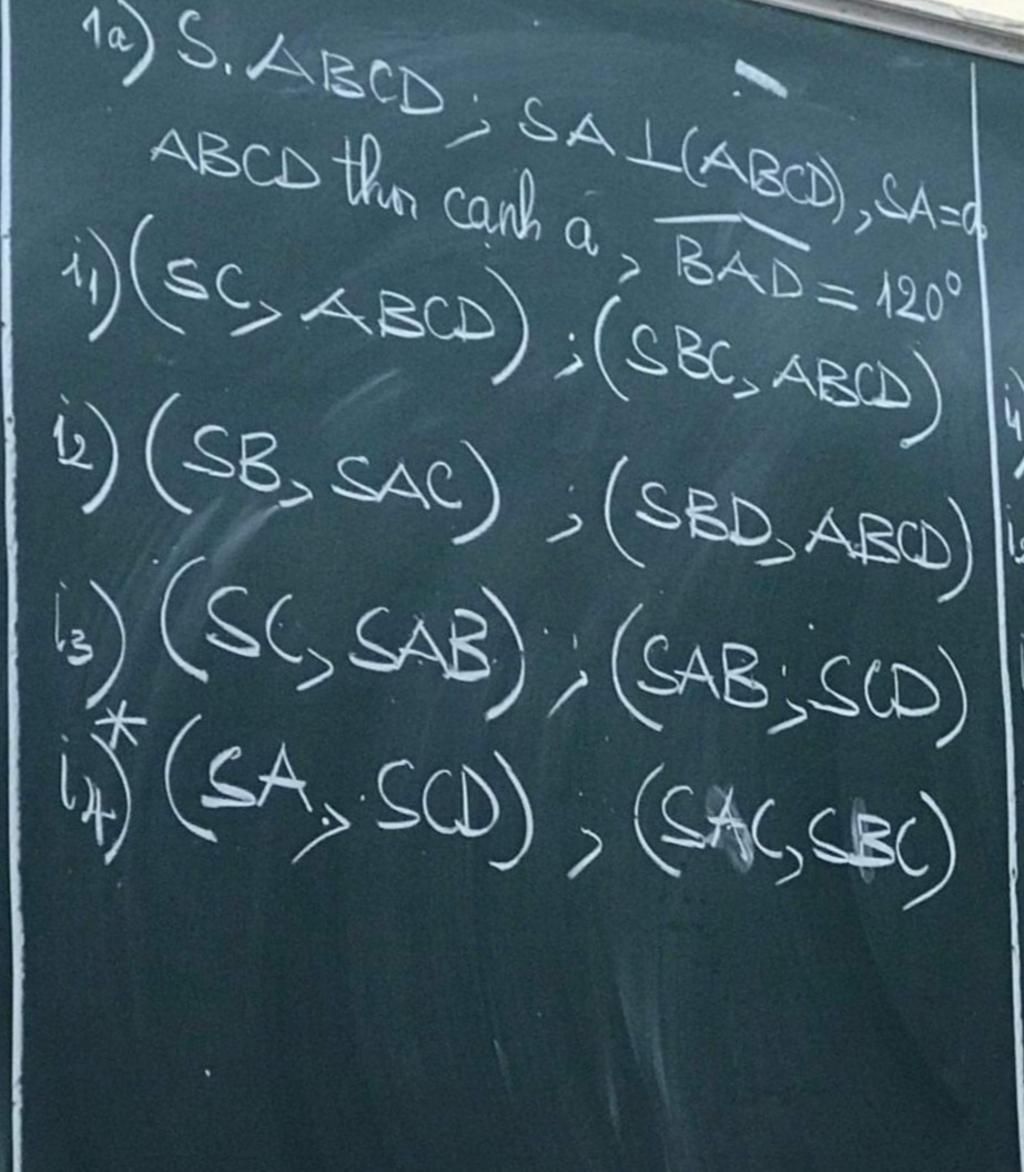 1a) S.ABCD; SA⊥(ABCD), SA=a
ABCD thoi cạnh a, BAD = 120°
i₁) (SC, ABCD); (SBC, ABCD)
i₂) (SB, SAC); (SBD, ABCD)
i₃) (SC, SAB); (SAB; SCD)
i₄)* (SA, SCD), (SAC, SBC)